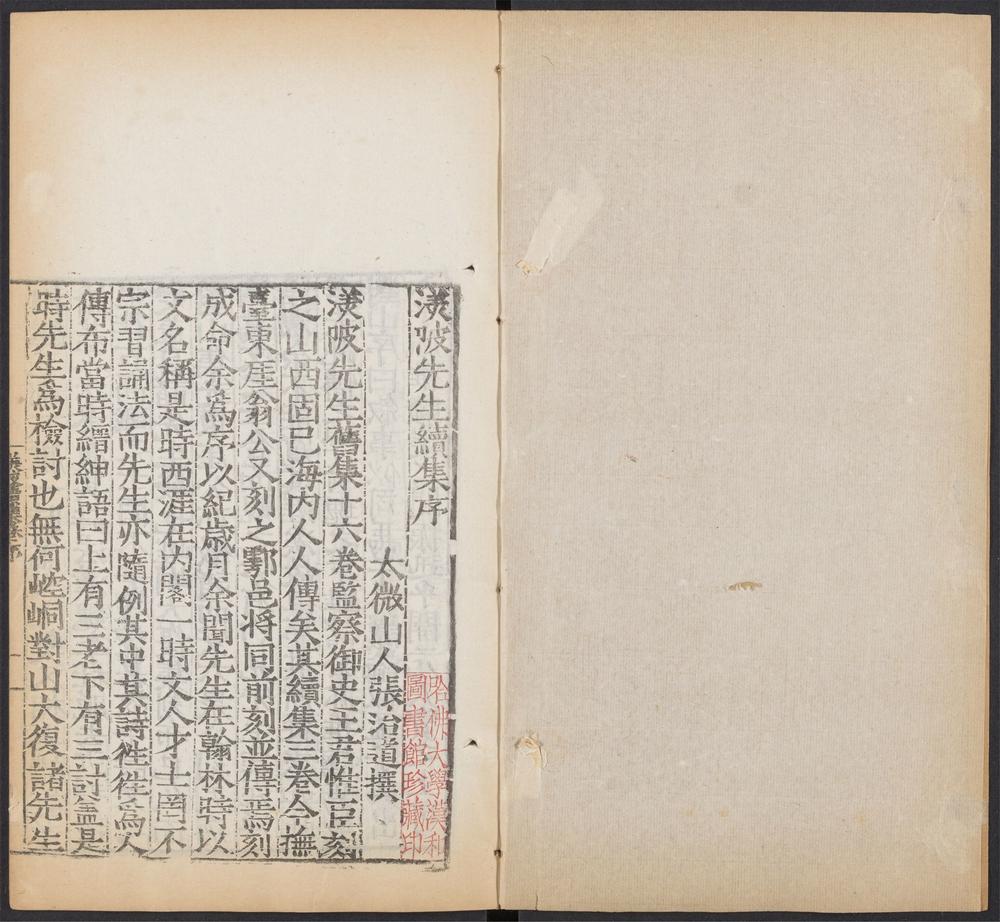 渼陂先生續集序
太微山人張治道撰
渼陂先生舊集十六卷監察御史王君惟臣刻
之山西固已海内人人傳矣其續集三卷今撫
臺東厓翁公又刻之鄠邑将同前刻並傳焉刻
成命余為序以紀歲月余聞先生在翰林時以
文名稱是時西涯在内閣一時文人才士罔不
宗習誦法而先生亦隨例其中其詩徃徃爲人
傳布當時縉紳語曰上有三老下有三討盖是
時先生爲檢討也無何崆峒對山大復諸先生
哈佛大學漢和
圖書館珍藏印